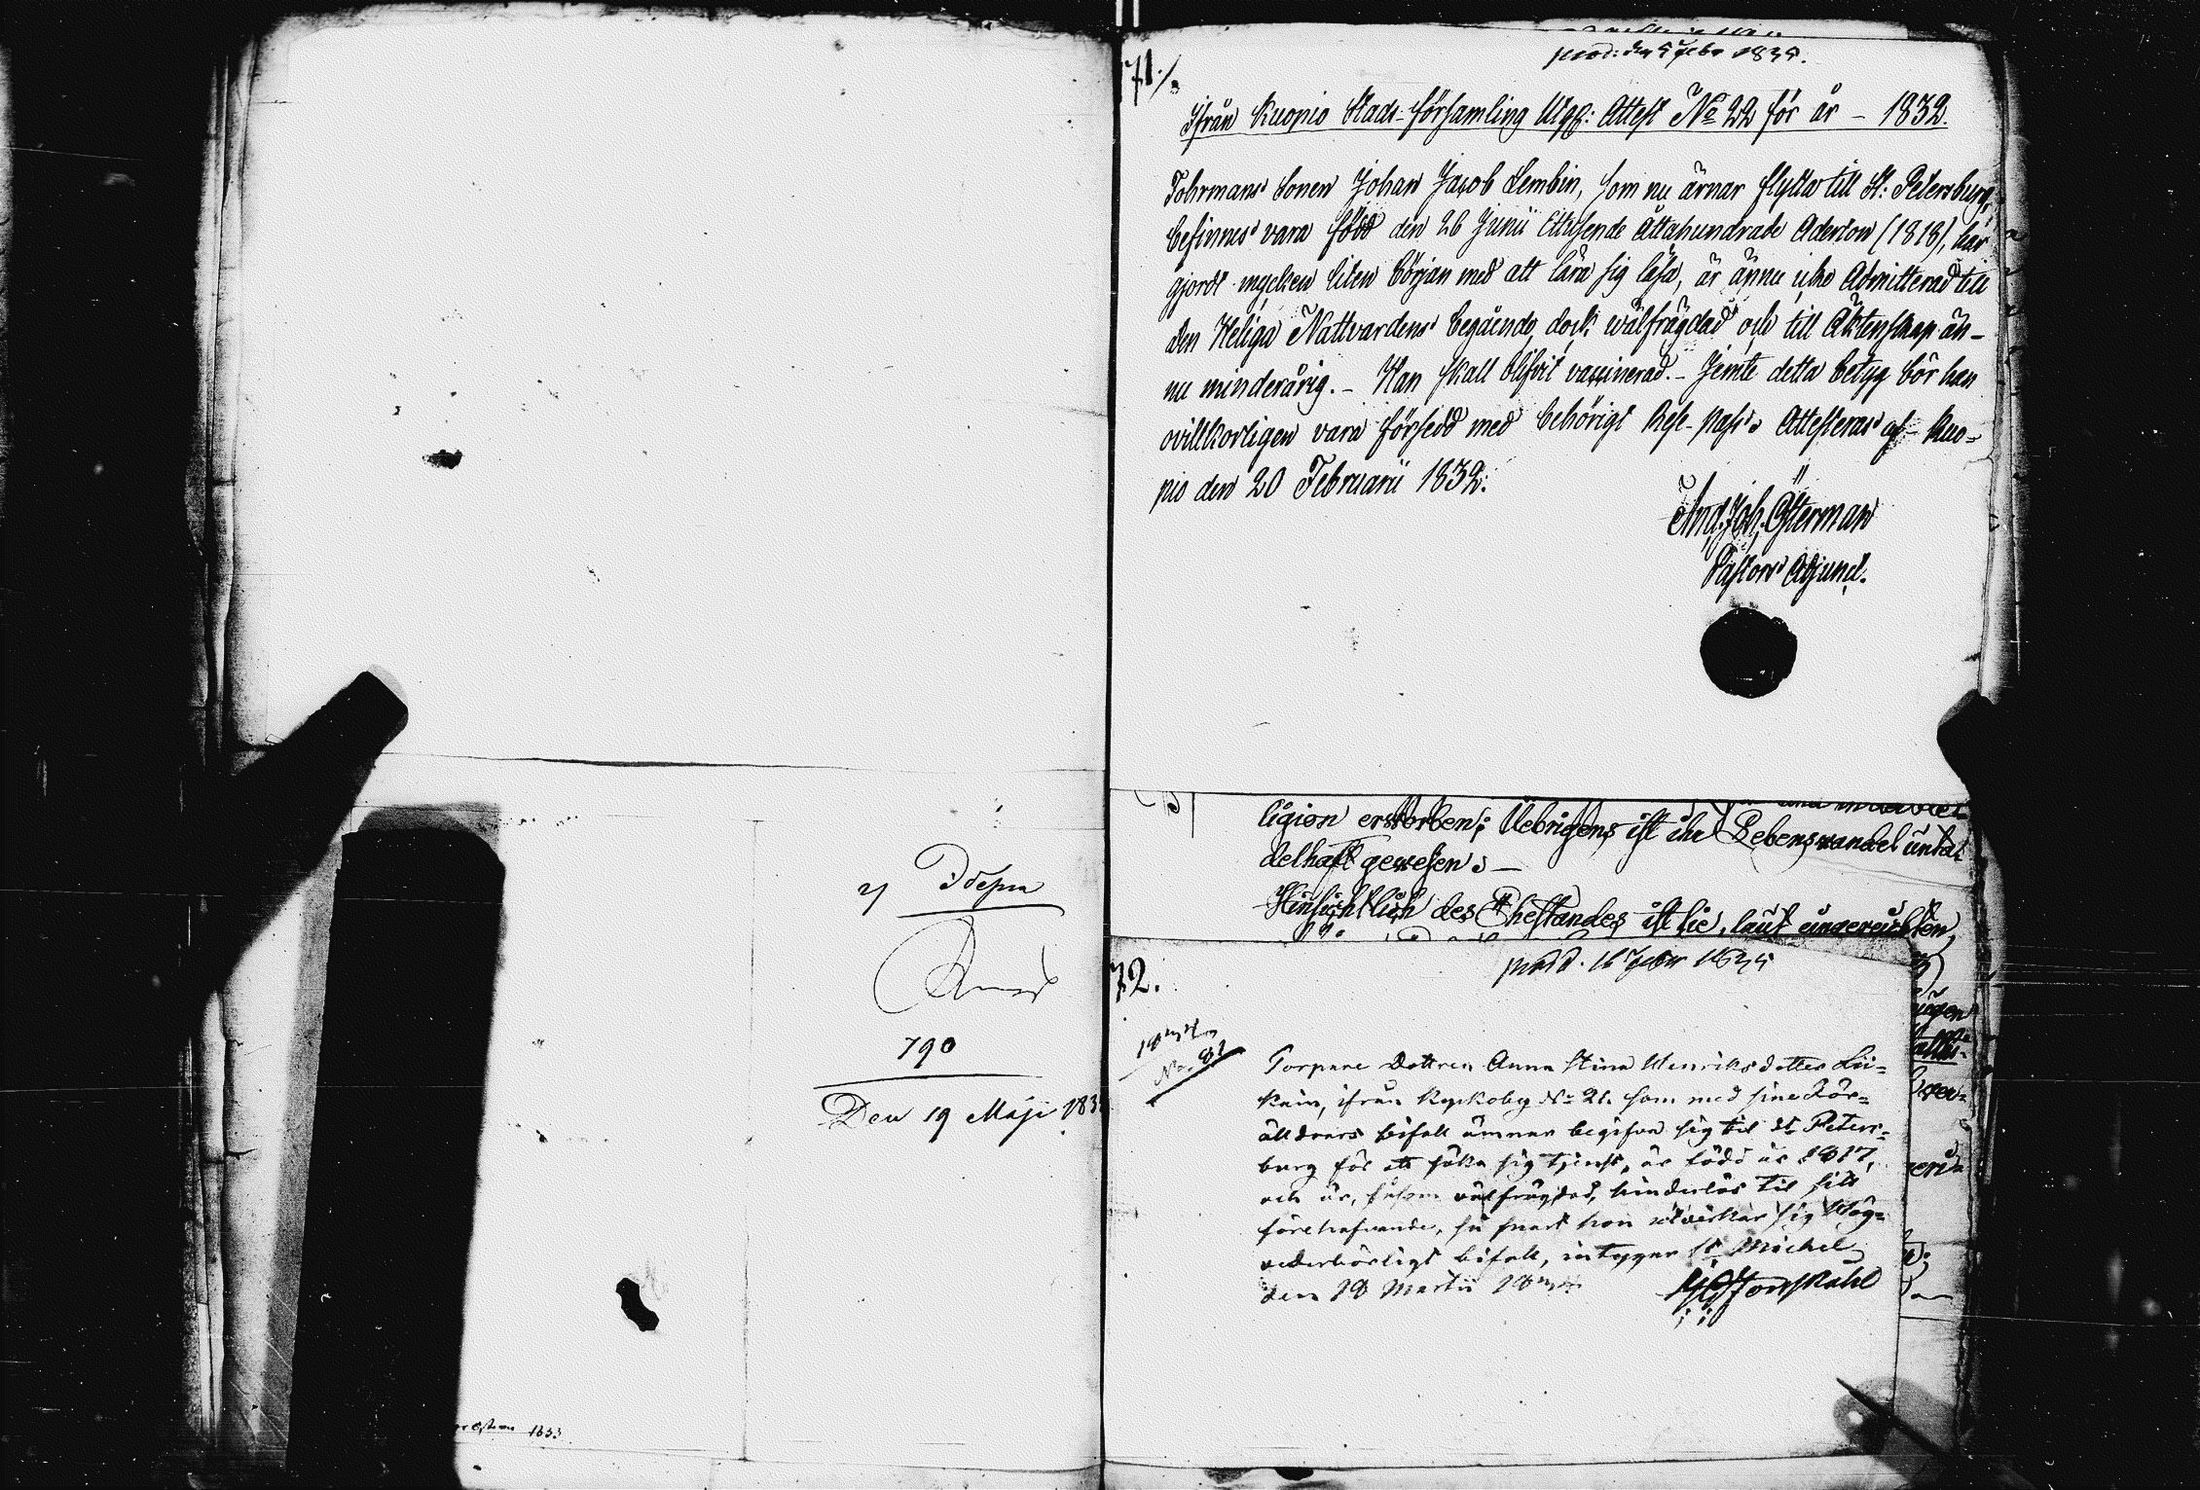 790
Den 19 Maji 183
1833
prod: den 5 Febr 1835.
71./.
Ifrån Kuopio Stads-församling Utgg: Attest No 22 för år - 1832.
Johan Jacob Lembin, som nu ärnar flytta till St: Petersburg,
befinnes vara född den 26 Junii Ettusende Åttahundrade Aderton (1818), har
gjordt mycken liten början med att lära sig läsa, är ännu icke Admitterad till
den Heliga Nattvardens begående, dock wälfrägdad och till Äktenskap än-
nu minderårig. - Han skall blifvit vaccinerad. - Jemte detta betyg bör han
ovillkorligen vara försedd med behörigt Rese-Pass. Attesteras af Kuo-
pio den 20 Februarii 1832.
And. Joh. Österman
Pastors Adjunct.
ligion erstorben; Uebrigens ist ihr Lebenswandel untad
delhaft gewesen. —
Hinsichtlich des Ehestandes ist sie, laut eingereichten,
prod. 16 Febr 1835
72.
No. 81
Torpare Dottren Anna Stina Henriksdotter Lii-
kain, ifrån No 21. som med sina För-
äldrars bifall ämnar begifva sig til St. Peters-
burg för att söka sig tjenst, är född år 1817,
och är, såsom välfrägdad, hinderlös til sitt
förehafvande, så snart hon utverkar sig Hög-
vederbörligt bifall, intygar St. Michel
den 18 Martii